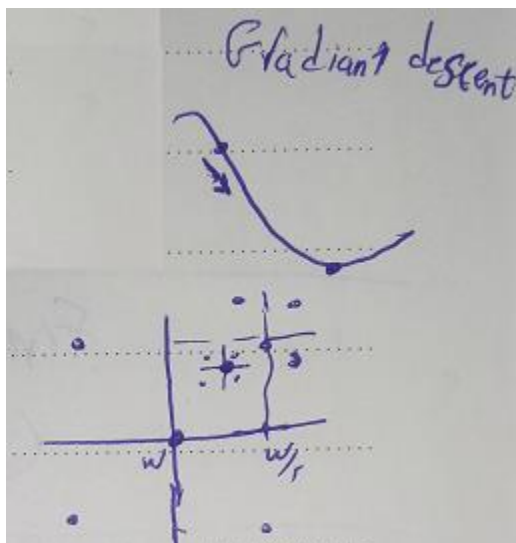 Gradiant descent
W